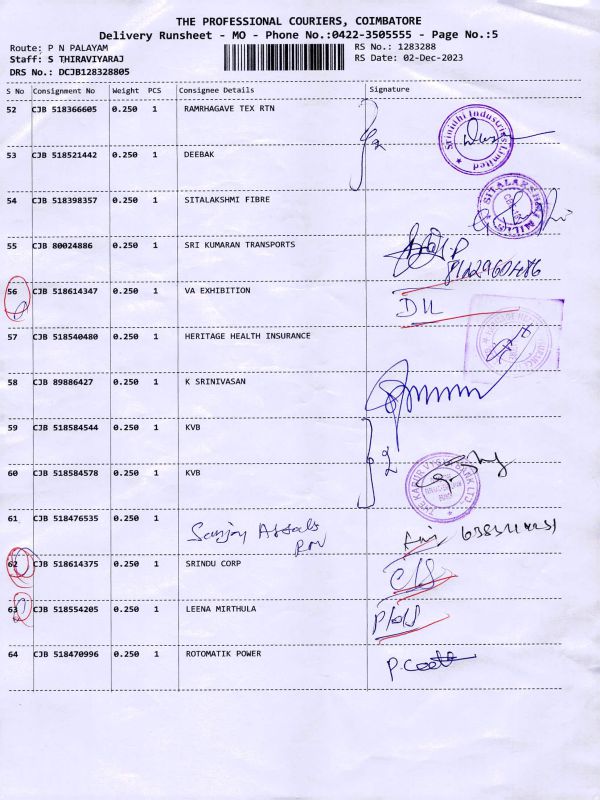 THE PROFESSIONAL COURIERS, COIMBATORE
Delivery Runsheet - MO - Phone No.:0422-3505555 - Page No.:5
Route: P N PALAYAM RS No.: 1283288
Staff: S THIRAVIYARAJ RS Date: 02-Dec-2023
DRS No.: DCJB128328805
S No Consignment No Weight PCS Consignee Details Signature
52 CJB 518366605 0.250 1 RAMRHAGAVE TEX RTN
Srinidhi Industries Limited
53 CJB 518521442 0.250 1 DEEBAK
54 CJB 518398357 0.250 1 SITALAKSHMI FIBRE
SITALAKSHMI MILLS
55 CJB 80024886 0.250 1 SRI KUMARAN TRANSPORTS
56 CJB 518614347 0.250 1 VA EXHIBITION
57 CJB 518540480 0.250 1 HERITAGE HEALTH INSURANCE
58 CJB 89886427 0.250 1 K SRINIVASAN
59 CJB 518584544 0.250 1 KVB
60 CJB 518584578 0.250 1 KVB
THE KARUR VYSYA BANK LTD.
61 CJB 518476535 0.250 1 Sanjoy
62 CJB 518614375 0.250 1 SRINDU CORP
63 CJB 518554205 0.250 1 LEENA MIRTHULA
64 CJB 518470996 0.250 1 ROTOMATIK POWER